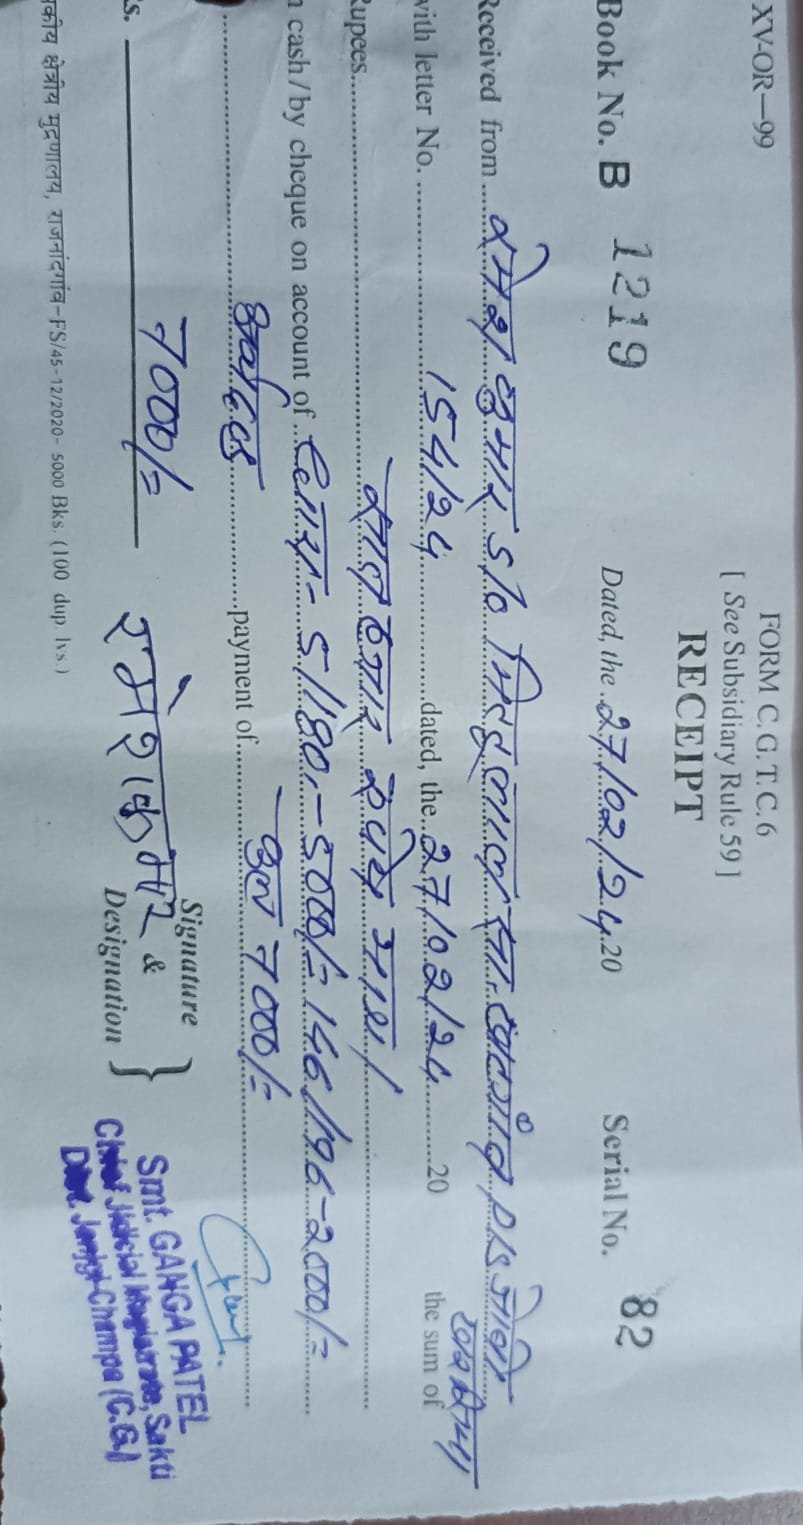 XV-OR—99
FORM C.G.T.C.6
[ See Subsidiary Rule 59 ]
RECEIPT
Book No. B 1219 Dated, the 27/02/24 20 Serial No. 82
Received from रमेश कुमार S/o
with letter No. 154/24 dated, the 27/02/24 20 the sum of
Rupees सात हजार रुपये मात्र
cash/by cheque on account of 51180,-5000/= 146/196-2000/=
payment of 7000/=
s. 7000/=
रमेश कुमार
Signature & Designation }
Smt. GANGA PATEL
Chief Judicial Magistrate, Sakti
Dist. Janjgir-Champa (C.G.)
कीय क्षेत्रीय मुद्रणालय, राजनांदगांव-FS/45-12/2020- 5000 Bks. (100 dup lvs.)